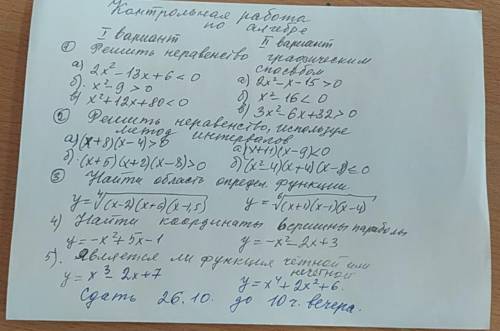 Контрольная работа
по алгебре
I вариант II вариант
1 Решить неравенство графическим
способом
а) 2x²-13x+6<0 а) 2x²-x-15>0
б) x²-9>0 б) x²-16<0
в) x²+12x+80<0 в) 3x²-6x+32>0
2 Решить неравенство, используя
метод интервалов
а) (x+8)(x-4)>0 а) (x+11)(x-9)<0
б) (x+5)(x+2)(x-8)>0 б) (x²-4)(x+4)(x-8)≤0
3 Найти область определ. функции
y=∜(x-2)(x+2)(x-1,5) y=⁶√(x+1)(x-1)(x-4)
4) Найти координаты вершины параболы
y=-x²+5x-1 y=-x²-2x+3
5). Является ли функция чётной или
нечётной
y=x³-2x+7 y=x⁴+2x²+6.
Сдать 26.10. до 10 ч. вечера.